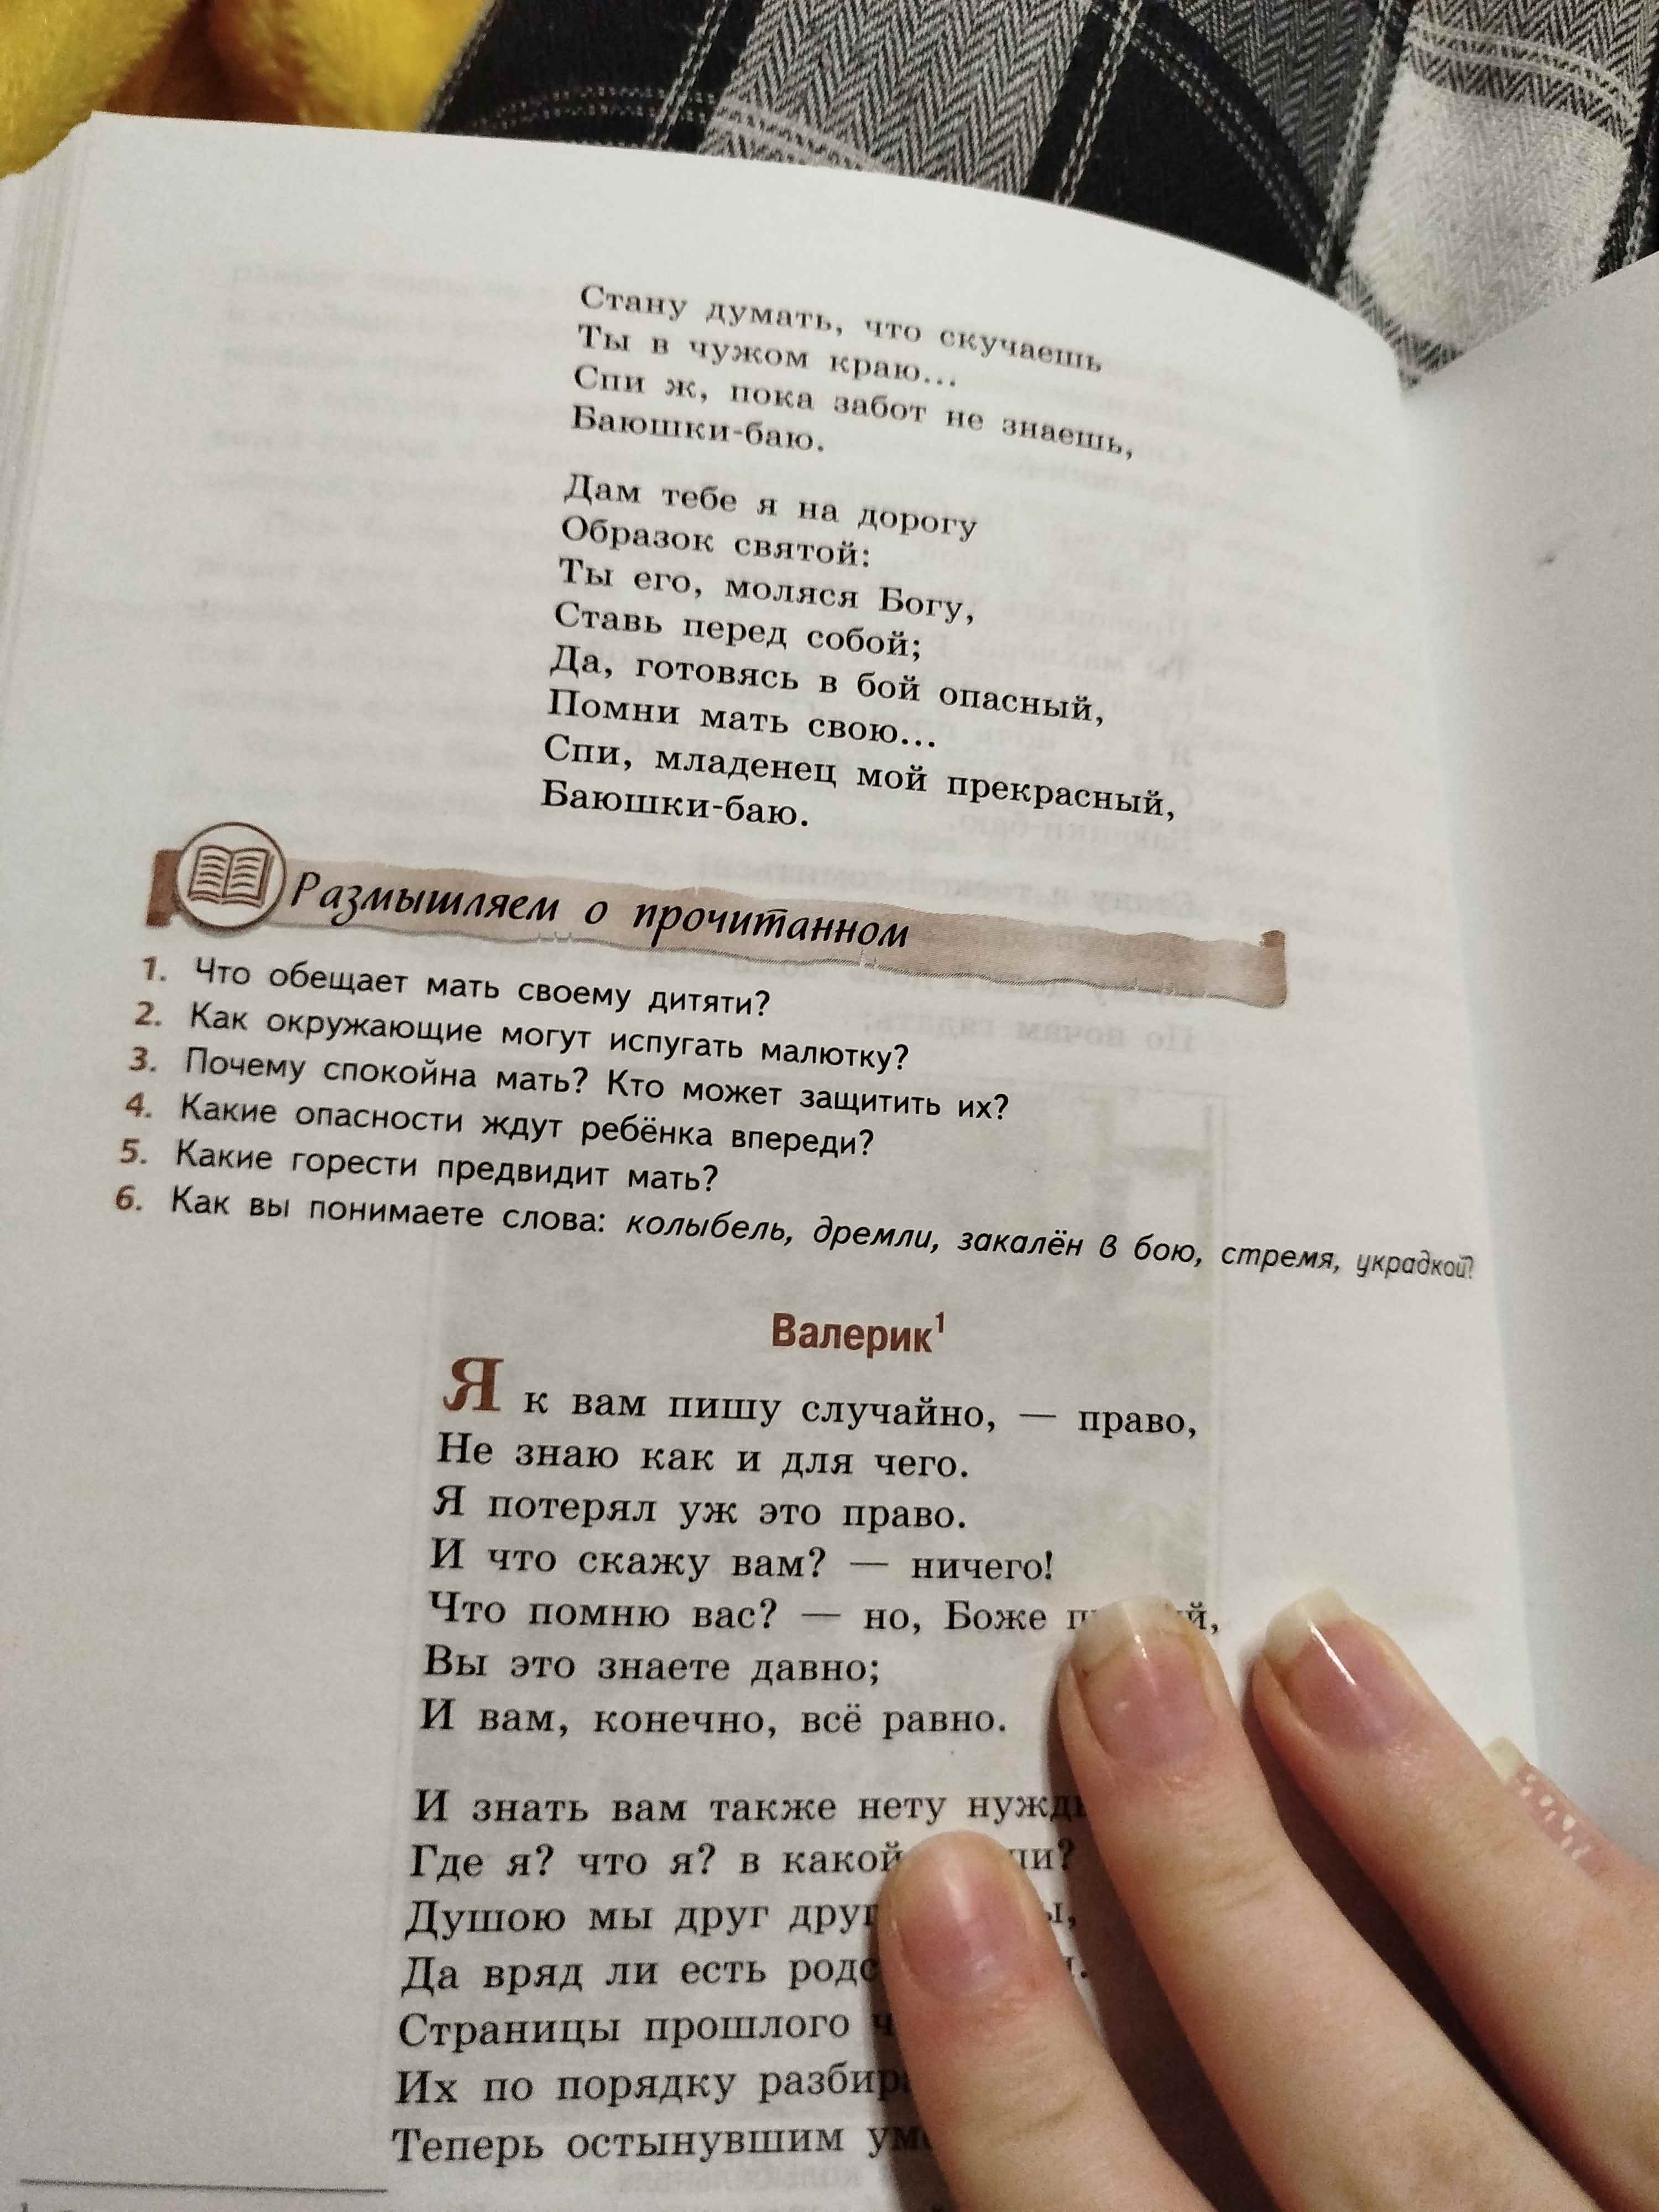 Стану думать, что скучаешь
Ты в чужом краю...
Спи ж, пока забот не знаешь,
Баюшки-баю.
Дам тебе я на дорогу
Образок святой:
Ты его, моляся Богу,
Ставь перед собой;
Да, готовясь в бой опасный,
Помни мать свою...
Спи, младенец мой прекрасный,
Баюшки-баю.
Размышляем о прочитанном
1. Что обещает мать своему дитяти?
2. Как окружающие могут испугать малютку?
3. Почему спокойна мать? Кто может защитить их?
4. Какие опасности ждут ребёнка впереди?
5. Какие горести предвидит мать?
6. Как вы понимаете слова: колыбель, дремли, закалён в бою, стремя, украдкой?
Валерик¹
Я к вам пишу случайно, — право,
Не знаю как и для чего.
Я потерял уж это право.
И что скажу вам? — ничего!
Что помню вас? — но, Боже
Вы это знаете давно;
И вам, конечно, всё равно.
И знать вам также нету
Где я? что я? в какой
Душою мы друг
Да вряд ли есть
Страницы прошлого
Их по порядку
Теперь остынувшим